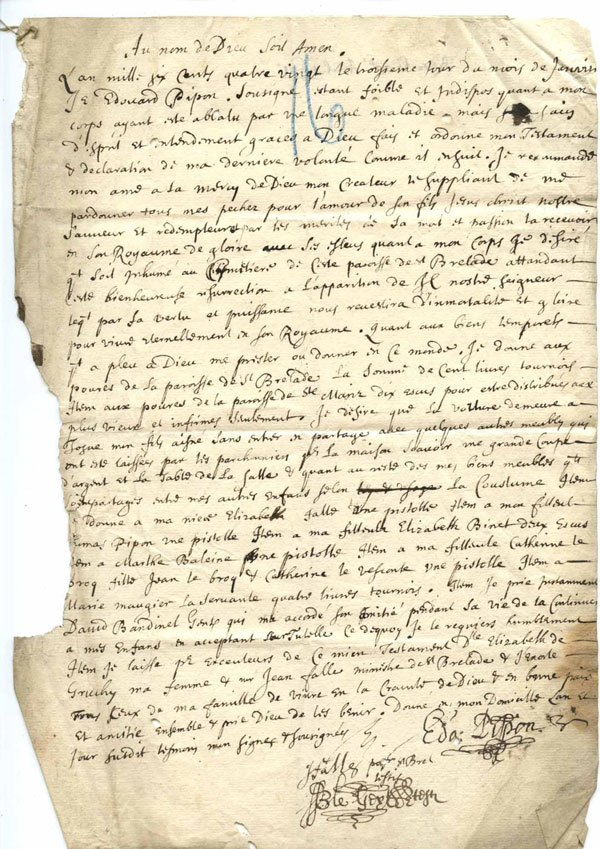 Au nom de Dieu Soit Amen.
L'an mille six Cents quatre vingt le troisieme Jour du mois de Janvier
Je Edouard Pipon. Sousigné estant foible et Indispos quant a mon
corps ayant esté abbatu par une longue maladie mais sain
d'Esprit et Intendement graces a Dieu fais et ordonne mon Testament
& declaration de ma derniere volonté Comme il ensuit. Je recommande
mon ame a la mercy de Dieu mon Createur le suppliant de me
pardonner tous mes pechez pour l'amour de son fils Jesus christ nostre
Sauveur et redempteur par les merites de sa mort et passion la recevoir
en Son Royaume de gloire avec Ses esleus quant a mon Corps Je desire
qt Soit Inhumé au Cymetiere de Ceste paroisse de St Brelade attandant
ceste bienheureuse resurrection a l'apparition de nostre Seigneur
leql par Sa vertu et puissance nous revestira d'Immortalité et gloire
pour vivre eternellement en son Royaume. Quant aux biens temporels
a pleu a Dieu me prester ou donner en Ce monde. Je donne aux
poures de la paroisse de St Brelade la Somme de Cent livres tournois
Item aux poures de la paroisse de Ste Marie dix escus pour estre distribués aux
plus vieux et infirmes seulement. Je desire que la voiture demeure a
Josue mon fils aisné Sans entrer en partage avec quelques autres meubles qui
ont esté laissées par les parchonniers pr la maison scavoir une grande Coupe
d'argent et la Table de la Salle & quant au reste des mes biens meubles
partagés entre mes autres Enfans selon la Coustume Item
donne a ma niece Elizabeth falle Une pistolle Item a mon filleul
Pipon une pistolle Item a ma filleule Elizabeth Binet deux Escus
Item a Marthe Baleine Une pistolle Item a ma filleule Catherine le
brocq fille Jean le Broq & Catherine le Vesconte une pistolle Item a
Marie maugier la Servante quatre livres tournois. Item Je prie Instamment
David Bandinel Gents qui ma accordé son amitié pendant Sa vie de la Continuer
a mes Enfans en acceptant leur Tutelle Ce dequoy Je le requiers humblement
Item Je laisse pr Executeurs de Ce mien Testament Elizabeth de
Gruchy ma femme & mr Jean falle ministre de St Brelade & J'exorte
tous Ceux de ma famille de vivre En la Crainte de Dieu & en bonne paix
et amitié Ensemble & prie Dieu de les benir. Donné en mon Domicille L'an et
Jour susdit tesmoin mon Signe & Sousignés
Edo: Pipon
J falle St Brel
testis